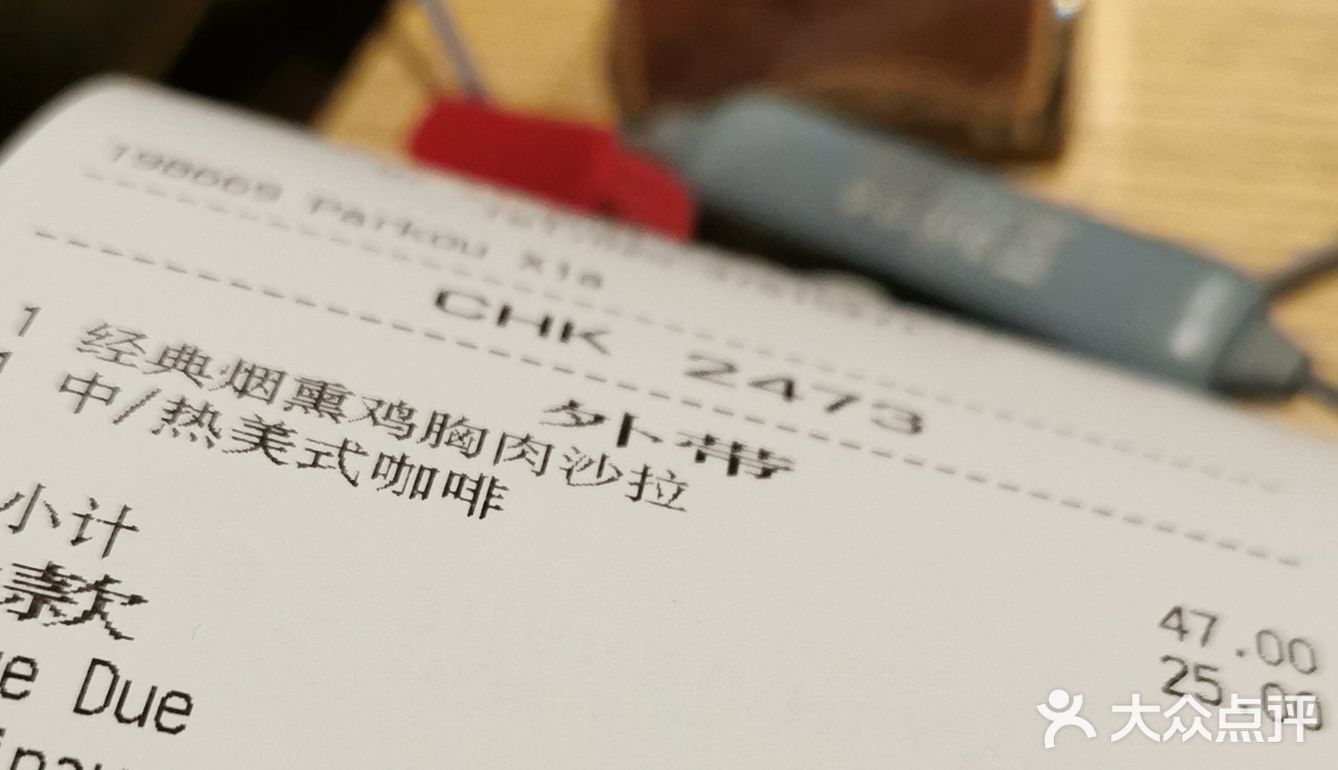 198669 Parkou Xia
CHK 2473
外带
1 经典烟熏鸡胸肉沙拉 47.00
1 中/热美式咖啡 25.00
小计
Due
大众点评